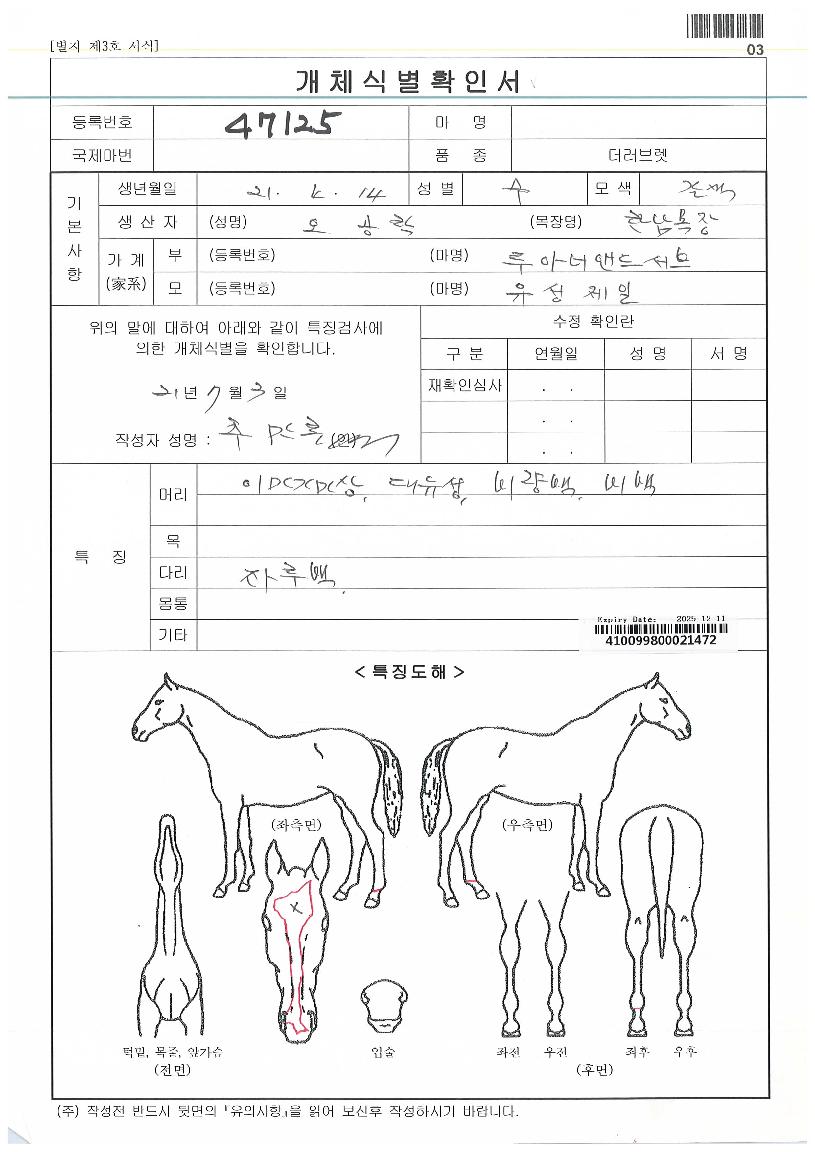 [별지 제3호 서식]
03
개체식별확인서
등록번호 47125 마 명
국제마번 품 종 더러브렛
기본사항
생년월일 21. 4. 14 성 별 수 모 색 갈색
생 산 자 (성명) 오 공 학 (목장명) 한남목장
가 계 (家系) 부 (등록번호) (마명) 투아너앤드서브
모 (등록번호) (마명) 유성제일
위의 말에 대하여 아래와 같이 특징검사에
의한 개체식별을 확인합니다.
21년 7월 3일
작성자 성명 :
수정 확인란
구 분 연월일 성 명 서 명
재확인심사 . .
. .
. .
특 징
머리 대유성, 비량백, 비백
목
다리 좌후백.
몸통
기타
Expiry Date: 2025-12-11
410099800021472
< 특징도해 >
(좌측면) (우측면)
턱밑, 목줄, 앞가슴
(전면)
입술
좌전 우전 좌후 우후
(후면)
(주) 작성전 반드시 뒷면의 「유의사항」을 읽어 보신후 작성하시기 바랍니다.